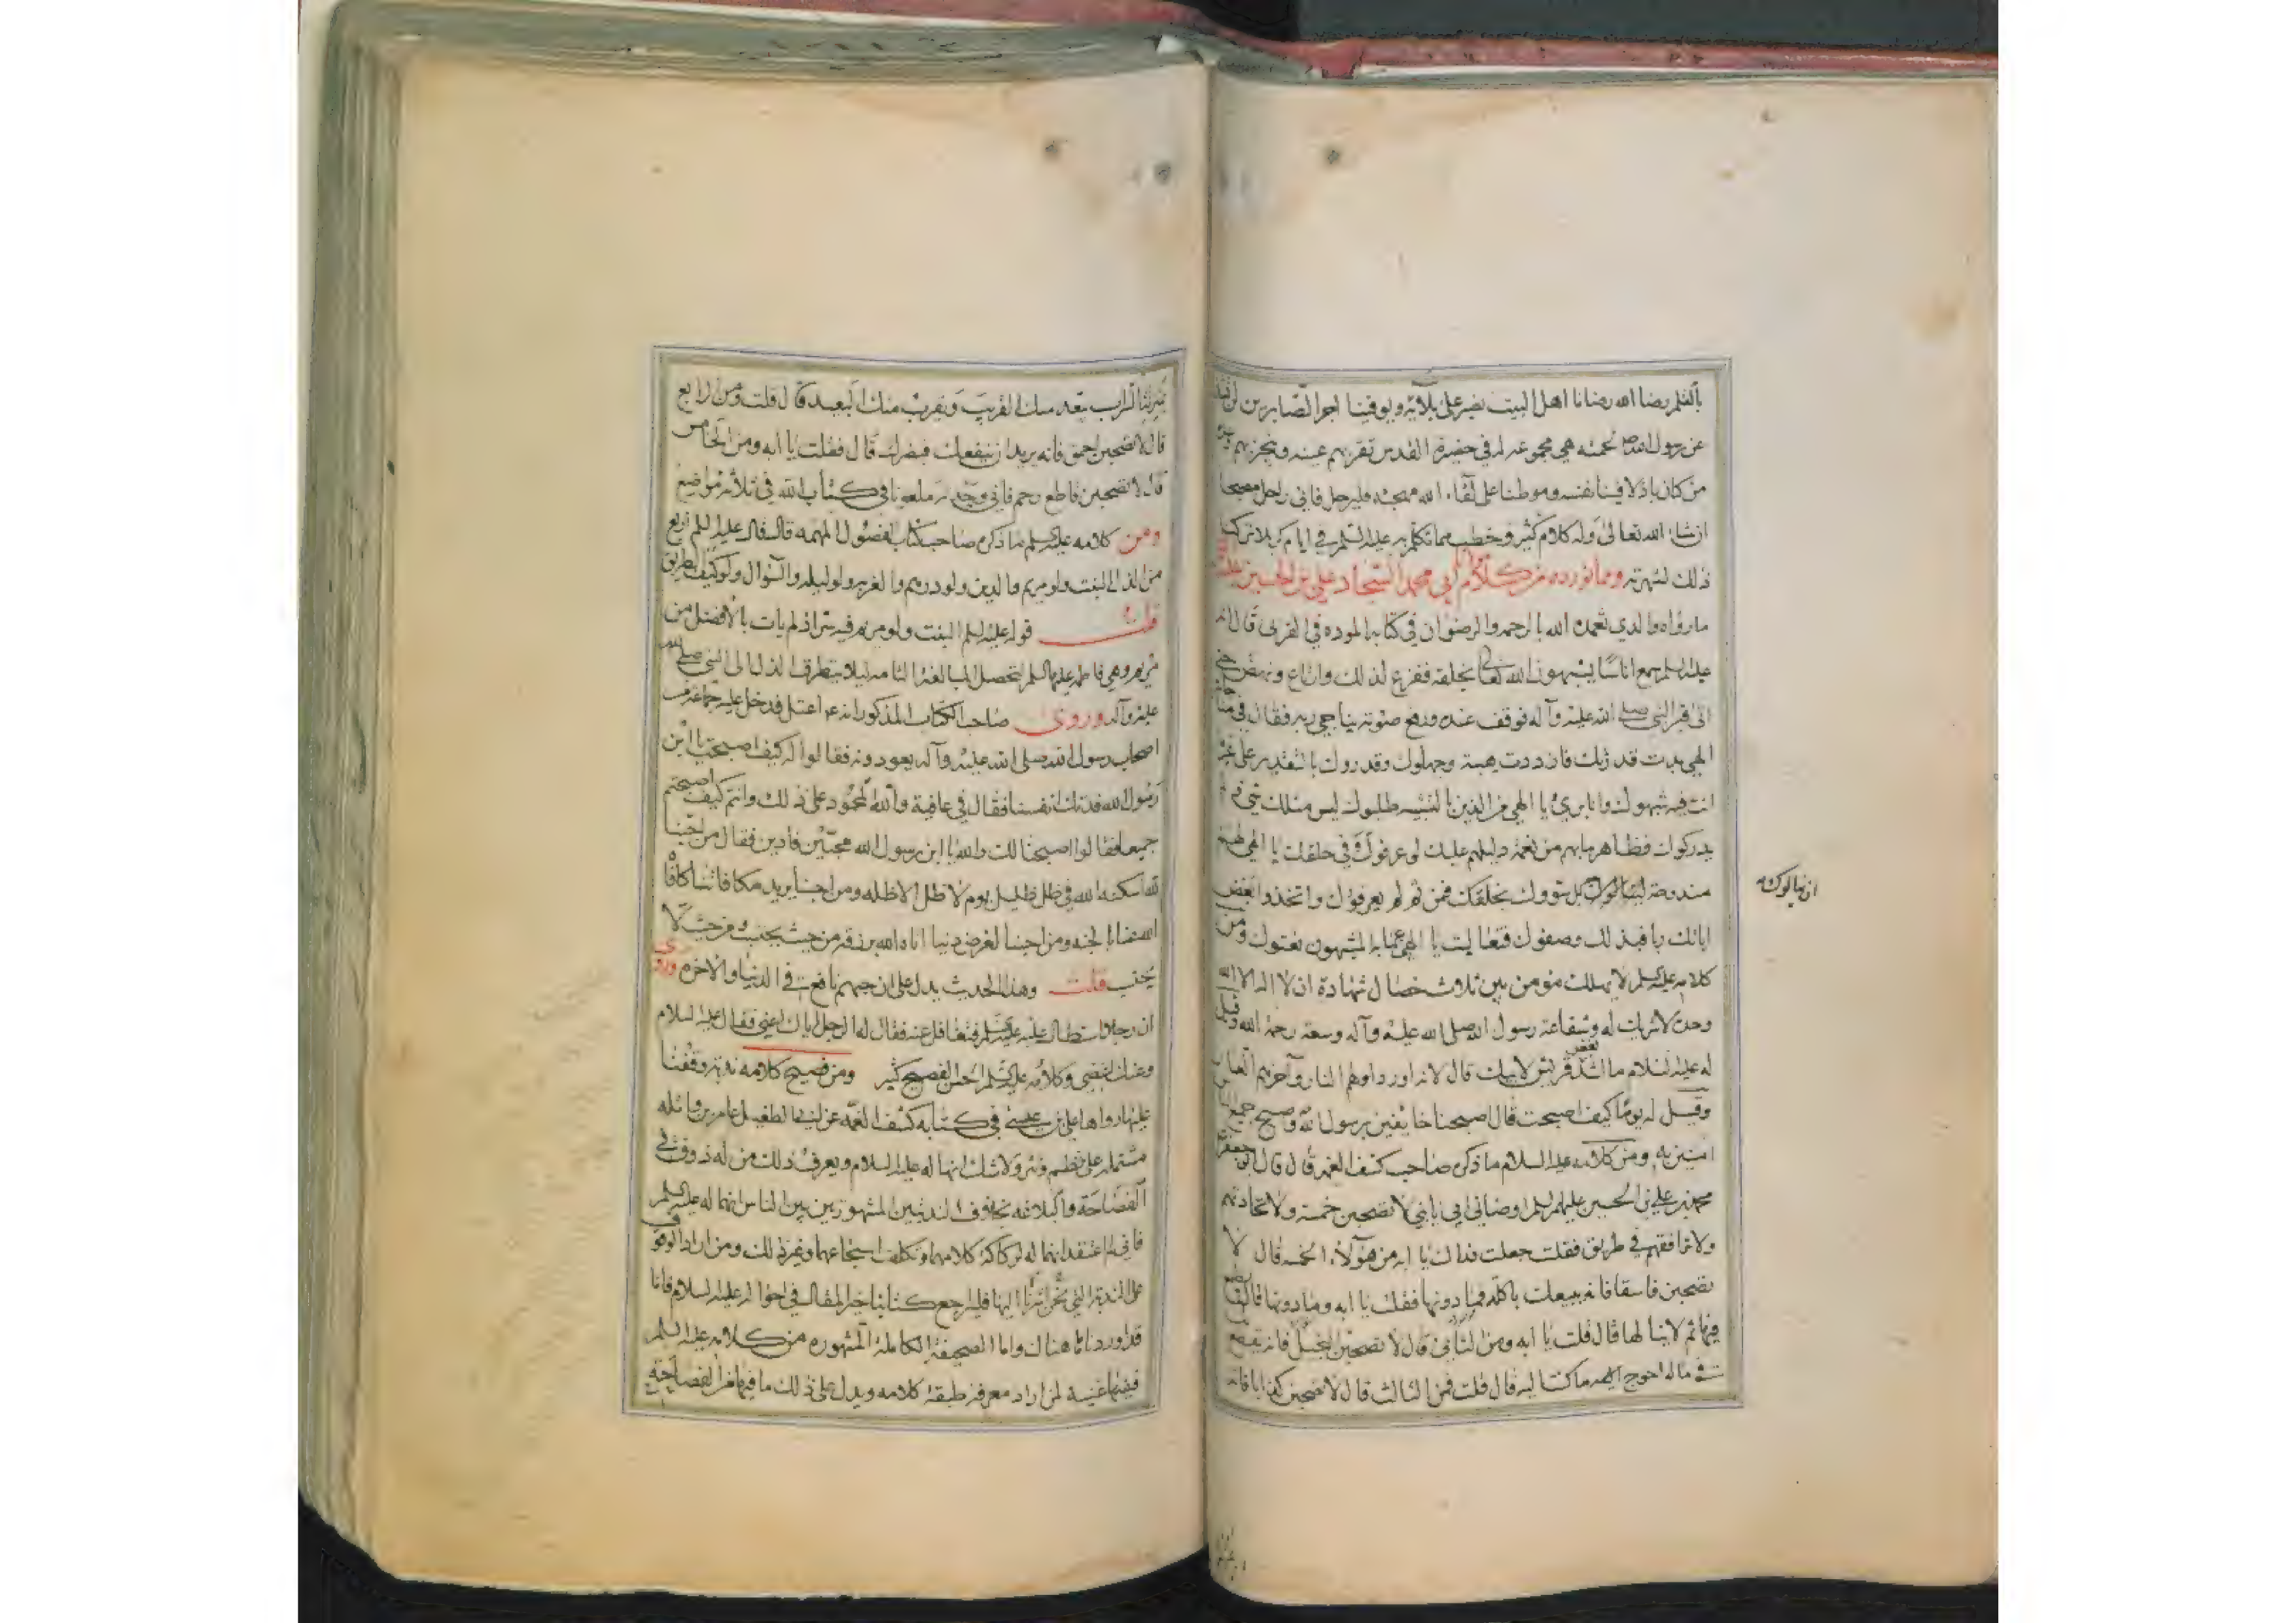 بالقلم رضا الله رضانا اهل البيت نصبر على بلائه ويوفينا اجر الصابرين لن تشذ
عن رسول الله لحمته هي مجموعه له في حضيرة القدس تقر بهم عينه وينجز بهم وعده
من كان باذلا فينا نفسه وموطنا على لقاء الله مهجته فليرحل فاني راحل مصبحا
انشاء الله تعالى وله كلام كثير وخطب مما تكلم به عليه السلم في ايام كربلا تركنا
ذلك لشهرته ومما نورده من كلام ابي محمد السجاد علي بن الحسين عليه
ما رواه والدي تغمده الله بالرحمه والرضوان في كتابه الموده في القربى قال انه
عليه السلم سمع اناسا يشبهون الله تعالى بخلقه ففزع لذلك وارتاع ونهض حتى
اتى قبر النبي صلى الله عليه وآله فوقف عنده ورفع صوته يناجي ربه فقال في مناجاته
الهي بدت قدرتك فان ددت هيبة وجهلوك وقدروك بالتقدير على غير ما
انت فيه شبهوك وانا بريء يا الهي من الذين بالتشبيه طلبوك ليس مثلك شيء
يدركوك فظاهر ما بهم من نعمة دليلهم عليك لو عرفوك وفي خلقك يا الهي لهم
مندوحة ان يتناولوك بل سووك بخلقك فمن ثم لم يعرفوك واتخذوا بعض
اياتك ربا فبذلك وصفوك فتعاليت يا الهي عما به المشبهون نعتوك ومن
كلامه عليه السلم لا يهلك مؤمن بين ثلاث خصال شهادة ان لا اله الا الله
وحده لا شريك له وشفاعة رسول الله صلى الله عليه وآله وسعة رحمة الله وقيل
له عليه السلام ما اشد بغض قريش لابيك قال لانه اورد اولهم النار وآخرهم العار
وقيل له يوما كيف اصبحت قال اصبحنا خايفين برسول الله واصبح جميع الناس
امنين به ومن كلامه عليه السلام ما ذكره صاحب كشف الغمه قال قال ابو جعفر
محمد بن علي بن الحسين عليهم السلم اوصاني ابي يا بني لا تصحبن خمسة ولا تحادثهم
ولا ترافقهم في طريق فقلت جعلت فداك يا ابه من هؤلاء الخمسه قال لا
تصحبن فاسقا فانه يبيعك باكلة فما دونها فقلت يا ابه وما دونها قال يطمع
فيها ثم لا ينالها قال قلت يا ابه ومن الثاني قال لا تصحبن البخيل فانه يقطع
في ماله احوج اليه ما كنت اليه قال قلت فمن الثالث قال لا تصحبن كذابا فانه
ان يتناولوك
بمنزلة السراب يبعد منك القريب ويقرب منك البعيد قال قلت ومن الرابع
قال لا تصحبن احمق فانه يريد ان ينفعك فيضرك قال فقلت يا ابه ومن الخامس
قال لا تصحبن قاطع رحم فاني وجدته ملعونا في كتاب الله في ثلاثة مواضع
ومن كلامه عليه السلم ما ذكره صاحب كتاب الفصول المهمه قال قال عليه السلم اربع
من الذل البنت ولو مريم والدين ولو درهم والغربه ولو ليله والسؤال ولو كيف الطريق
قلت قوله عليه السلم البنت ولو مريم فيه سر اذ لم يات بالافضل من
مريم وهي فاطمه عليها السلم لتحصل المبالغة التامه ليلا يتطرق الذل الى النبي صلى الله
عليه وآله وروى صاحب الكتاب المذكور انه ع اعتل فدخل عليه جماعة من
اصحاب رسول الله صلى الله عليه وآله يعودونه فقالوا له كيف اصبحت يا ابن
رسول الله فدتك انفسنا فقال في عافية والله المحمود على ذلك وانتم كيف اصبحتم
جميعا فقالوا اصبحنا لك والله يا ابن رسول الله محبين وادين فقال من احبنا
لله اسكنه الله في ظل ظليل يوم لا ظل الا ظله ومن احبنا يريد مكافاتنا كافاه
الله عنا بالجنه ومن احبنا لغرض دنيا اتاه الله برزقه من حيث يحتسب ومن حيث لا
يحتسب قلت وهذا الحديث يدل على ان حبهم نافع في الدنيا والاخره وروى
ان رجلا استطال عليه عليه السلم فتغافل عنه فقال له الرجل اياك اعني فقال عليه السلام
وعنك اغضي وكلامه عليه السلم الحسن الفصيح كثير ومن فصيح كلامه ندبة وقفنا
عليها رواها علي بن عيسى في كتابه كشف الغمه عن ابي الطفيل عامر بن واثله
مشتمله على نظم ونثر ولا شك انها له عليه السلام ويعرف ذلك من له ذوق في
الفصاحة والبلاغه بخلاف الندبتين المشهورتين بين الناس انهما له عليه السلم
فاني لم اعتقد انهما له لركاكة كلامهما وتكلف اسجاعهما وغير ذلك ومن اراد الوقوف
على الندبة التي نحن اشرنا اليها فليراجع كتابنا خير المقال في احواله عليه السلام فانا
قد اوردناها هناك واما الصحيفة الكاملة المشهوره من كلامه عليه السلم
ففيها غنية لمن اراد معرفة طبقة كلامه ويدل على ذلك ما فيها من الفصاحة